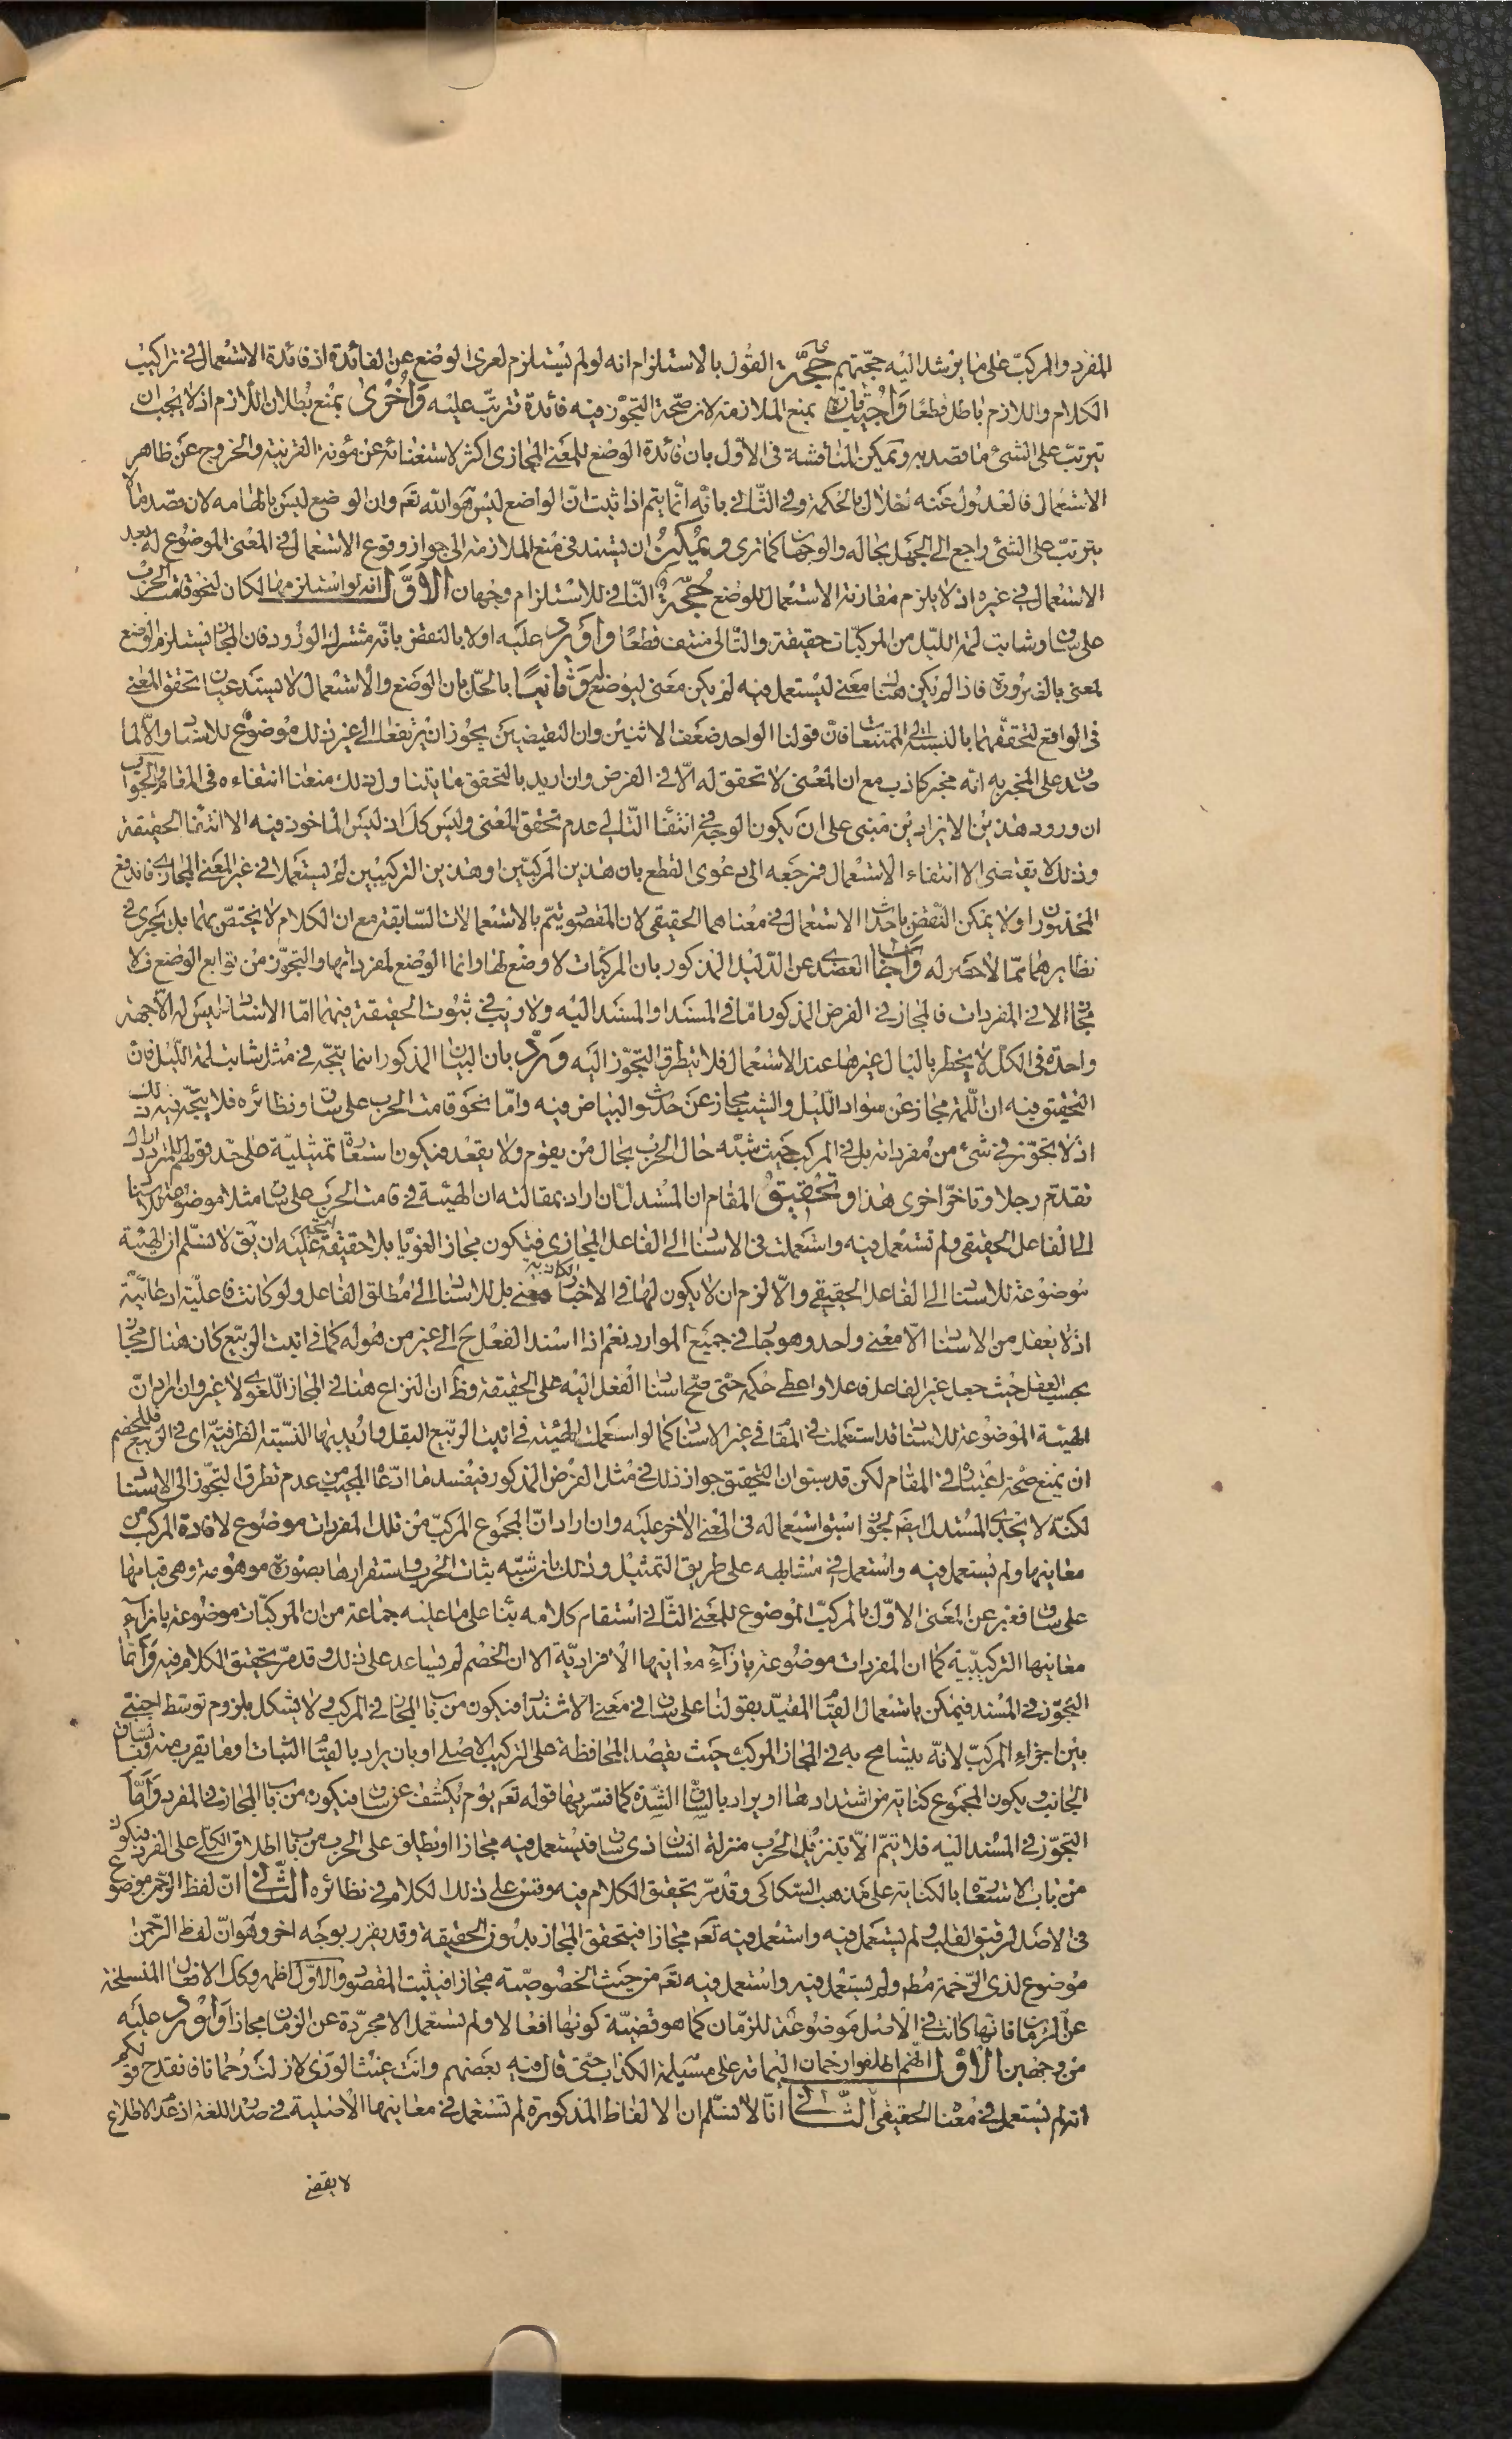 المفرد والمركبّ على ما يرشد اليه حجّتهم حجّة القول بالاستلزام انه لو لم يستلزم لعرى الوضع عن الفائدة اذ فائدة الاستعمال في تراكيب
الكلام واللازم باطل قطعًا وأجيب تارة بمنع الملازمة لان صحّة التجوّز فيه فائدة تترتّب عليه وأخرى بمنع بطلان اللازم اذ لا يجب ان
يترتبّ على الشئ ما قصد به ويمكن المناقشة في الاوّل بان فائدة الوضع للمعنى المجازى اكثر لاستغنائه عن مؤنة القرينة والخروج عن ظاهر
الاستعمال فالعدول عنه اخلال بالحكمة وفي الثّاني بانّه انّما يتم اذا ثبت انّ الواضع ليس هو اللّه تعم وان الوضع ليس بالهامه لان قصد ما لا
يترتبّ على الشئ راجع الى الجهل بحاله والوجهان كما ترى ويمكن ان يستند في منع الملازمة الى جواز وقوع الاستعمال في المعنى الموضوع له بعد
الاستعمال في غيره اذ لا يلزم مقارنة الاستعمال للوضع حجّة النّافي للاستلزام وجهان الاوّل انه لو استلزمها لكان لنحو قامت الحرب
على ساق وشابت لمة الليل من المركبّات حقيقة والتّالى منتف قطعًا وأورد عليه اولا بالنقض بانّه مشترك الورود فان المجاز يستلزم الوضع
لمعنى بالضرورة فاذا لم يكن هناك معنى ليستعمل فيه لم يكن معنى ليوضع له وثانيًا بالحلّ بان الوضع والاستعمال لا يستدعيان تحقق المعنى
في الواقع لتحققهما بالنسبة الى الممتنعات فانّ قولنا الواحد ضعف الاثنين وان النقيضين يجوز ان يرتفعا الى غير ذلك موضوع للاسناد والّا لما
صدق على المخبر به انه مخبر كاذب مع ان المعنى لا تحقق له الّا في الفرض وان اريد بالتحقق ما يتناول ذلك منعنا انتفاءه في المقام والجواب
ان ورود هذين الايرادين مبنى على ان يكون الوجه في انتفاء التّالى عدم تحقق المعنى وليس كك اذ ليس الماخوذ فيه الا انتفاء الحقيقة
وذلك لا يقتضى الا انتفاء الاستعمال فمرجعه الى دعوى القطع بان هذين المركبّين او هذين التركيبين لم يستعملا في غير المعنى المجازى فاندفع
المحذوران ولا يمكن النّقض باحداث الاستعمال في معناهما الحقيقى لان المقصود يتمّ بالاستعمالات السّابقة مع ان الكلام لا يختصّ بهما بل يجرى في
نظايرهما ممّا لا حصر له وأجاب العضدى عن الدّليل المذكور بان المركبّات لا وضع لها وانما الوضع لمفرداتها والتجوّز من توابع الوضع فلا
مجاز الا في المفردات فالمجاز في الفرض المذكور امّا في المسند او المسند اليه ولا ريب في ثبوت الحقيقة فيهما امّا الاسناد فليس له الّا جهة
واحدة في الكلّ لا يخطر بالبال غيرها عند الاستعمال فلا يتطرق التجوّز اليه وردّ بان البيان المذكور انما يتجّه في مثل شابت لمة الليل فان
التحقيق فيه ان اللّمة مجاز عن سواد اللّيل والشيب مجاز عن حدوث البياض فيه وامّا نحو قامت الحرب على ساق ونظائره فلا يتجّه فيه ذلك
اذ لا تجوّز في شئ من مفرداته بل في المركب حيث شبّه حال الحرب بحال من يقوم ولا يقعد فيكون استعارة تمثيليّة على حدّ قولهم للمتردد اراك
تقدّم رجلا وتاخّر اخرى هذا وتحقيق المقام ان المستدل ان اراد بمقالته ان الهيئة في قامت الحرب على ساق مثلا موضوعة للاسناد
الى الفاعل الحقيقى ولم تستعمل فيه واستعملت في الاسناد الى الفاعل المجازى فيكون مجازا لغويّا بلا حقيقة اتجه عليه ان يق لا نسلّم ان الهيئة
موضوعة للاسناد الى الفاعل الحقيقى والّا لزم ان لا يكون لها في الاخبار الكاذبة معنى بل للاسناد الى مطلق الفاعل ولو كانت فاعليّة ادعائيّة
اذ لا يعقل من الاسناد الّا معنى واحد وهو جار في جميع الموارد نعم اذا اسند الفعل ح الى غير من هو له كما في انبت الربيع كان هناك مجاز
بحسب العقل حيث جعل غير الفاعل فاعلا واعطى حكمه حتّى صحّ اسناد الفعل اليه على الحقيقة وظ ان النزاع هنا في المجاز اللّغوى لا غير وان اراد انّ
الهيئة الموضوعة للاسناد قد استعملت في المقام في غير الاسناد كما لو استعملت الهيئة في انبت الربيع البقل واريد بها النسبة الظرفيّة اى في الربيع فللخصم
ان يمنع صحّة اعتباره في المقام لكن قد سبق ان التحقيق جواز ذلك في مثل الفرض المذكور فيفسد ما ادّعاه المجيب من عدم تطرق التجوّز الى الاسناد
لكنّه لا يجدى المستدل ايضم لجواز سبق استعماله في المعنى الاخر عليه وان اراد انّ المجموع المركبّ من تلك المفردات موضوع لافادة المركب من
معانيها ولم يستعمل فيه واستعمل في مشابهه على طريق التمثيل وذلك بان شبّه ثبات الحرب واستقرارها بصورة موهومة وهى قيامها
على ساق فعبر عن المعنى الاوّل بالمركبّ الموضوع للمعنى الثّاني استقام كلامه بناء على ما عليه جماعة من ان المركبّات موضوعة بازاء
معانيها التركيبيّة كما ان المفردات موضوعة بازاء معانيها الافراديّة الا ان الخصم لم يساعد على ذلك وقد مرّ تحقيق الكلام فيه وأمّا
التجوّز في المسند فيمكن باستعمال القيام المقيّد بقولنا على ساق في معنى الاشتداد فيكون من باب المجاز في المركب ولا يشكل بلزوم توسّط اجنبى
بين اجزاء المركبّ لانّه يتسامح به في المجاز المركب حيث يقصد المحافظة على التركيب الاصلى او بان يراد بالقيام الثبات او ما يقرب منه وبساق
الجانب ويكون المجموع كناية من اشتدادها او يراد بالسّاق الشّدة كما فسّر بها قوله تعم يوم يكشف عن ساق فيكون من باب المجاز في المفرد وأمّا
التجوّز في المسند اليه فلا يتمّ الّا بتنزيل الحرب منزلة انسان ذى ساق فيستعمل فيه مجازا او يطلق على الحرب من باب اطلاق الكلّى على الفرد فيكون
من باب الاستعارة بالكناية على مذهب السّكاكى وقد مرّ تحقيق الكلام فيه وقس على ذلك الكلام في نظائره الثّاني انّ لفظ الرّحمن موضوع
في الاصل لرقيق القلب ولم يستعمل فيه واستعمل فيه تعم مجازا فيتحقق المجاز بدون الحقيقة وقد يقرر بوجه اخر وهو انّ لفظ الرّحمن
موضوع لذى الرّحمة مطم ولم يستعمل فيه واستعمل فيه تعم من حيث الخصوصيّة مجازا فيثبت المقصود والاوّل اظهر وكك الافعال المنسلخة
عن الزمان فانّها كانت في الاصل موضوعة للزّمان كما هو قضيّة كونها افعالا ولم تستعمل الا مجرّدة عن الزمان مجازا وأورد عليه
من وجهين الاوّل انّهم اطلقوا رحمان اليمامة على مسيلمة الكذاب حتّى قال فيه بعضهم وانت غيث الورى لا زلت رحمانا فانقدح قولكم
انه لم يستعمل في معناه الحقيقى الثّاني انّا لا نسّلم ان الالفاظ المذكورة لم تستعمل في معانيها الاصلية في صدر اللغة اذ عدم الاطلاع
لا يقضى